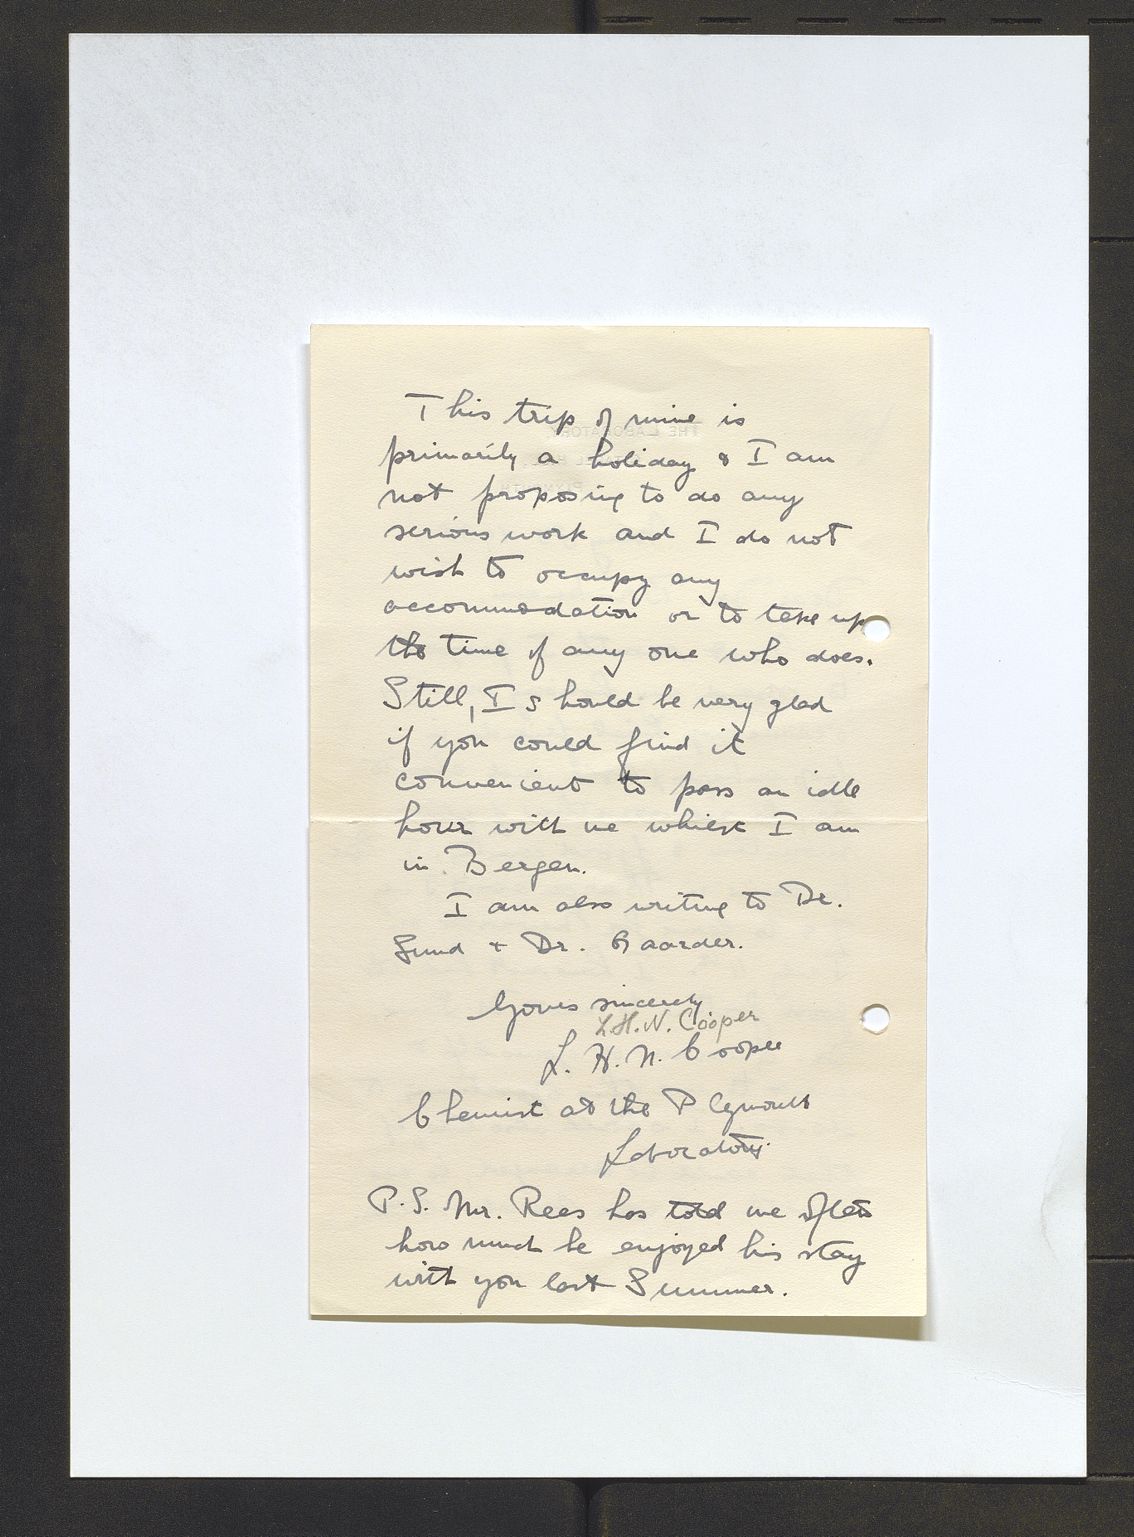 This trip of mine is
primarily a holiday & I am
not proposing to do any
serious work and I do not
wish to occupy any
accommodation or to take up
the time of any one who does.
Still, I should be very glad
if you could find it
convenient to pass an idle
hour with me whilst I am
in Bergen.
I am also writing to Dr.
Sund + Dr. Gaarder.
Yours sincerely
L.H.N. Cooper
L. H. N. Cooper
Chemist at the Plymouth
Laboratory.
P.S. Mr. Rees has told me often
how much he enjoyed his stay
with you last Summer.